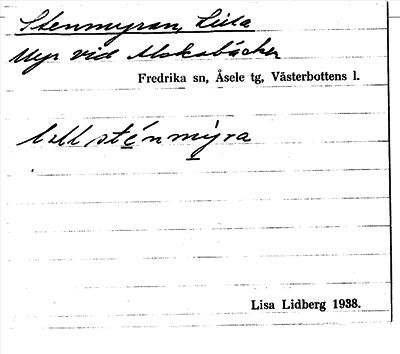 Stenmyran, Lilla
Myr vid Aloksbäcken
Fredrika sn, Åsele tg, Västerbottens l.
lill sténmýra
Lisa Lidberg 1938.